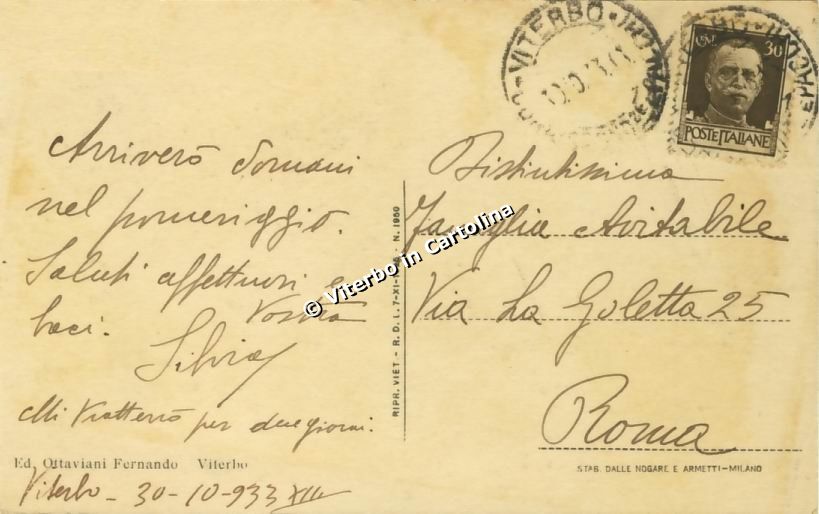 Arriverò domani
nel pomeriggio.
Saluti affettuosi e
baci. Vostra
Silvia
Mi tratterrò per due giorni.
Ed. Ottaviani Fernando Viterbo
Viterbo - 30-10-933 XII
RIPR. VIET - R. D. L. 7-XI- N. 1950
© Viterbo in Cartolina
VITERBO
CENT 30
POSTE ITALIANE
Distintissima
Famiglia Avitabile
Via La Goletta 25
Roma
STAB. DALLE NOGARE E ARMETTI-MILANO